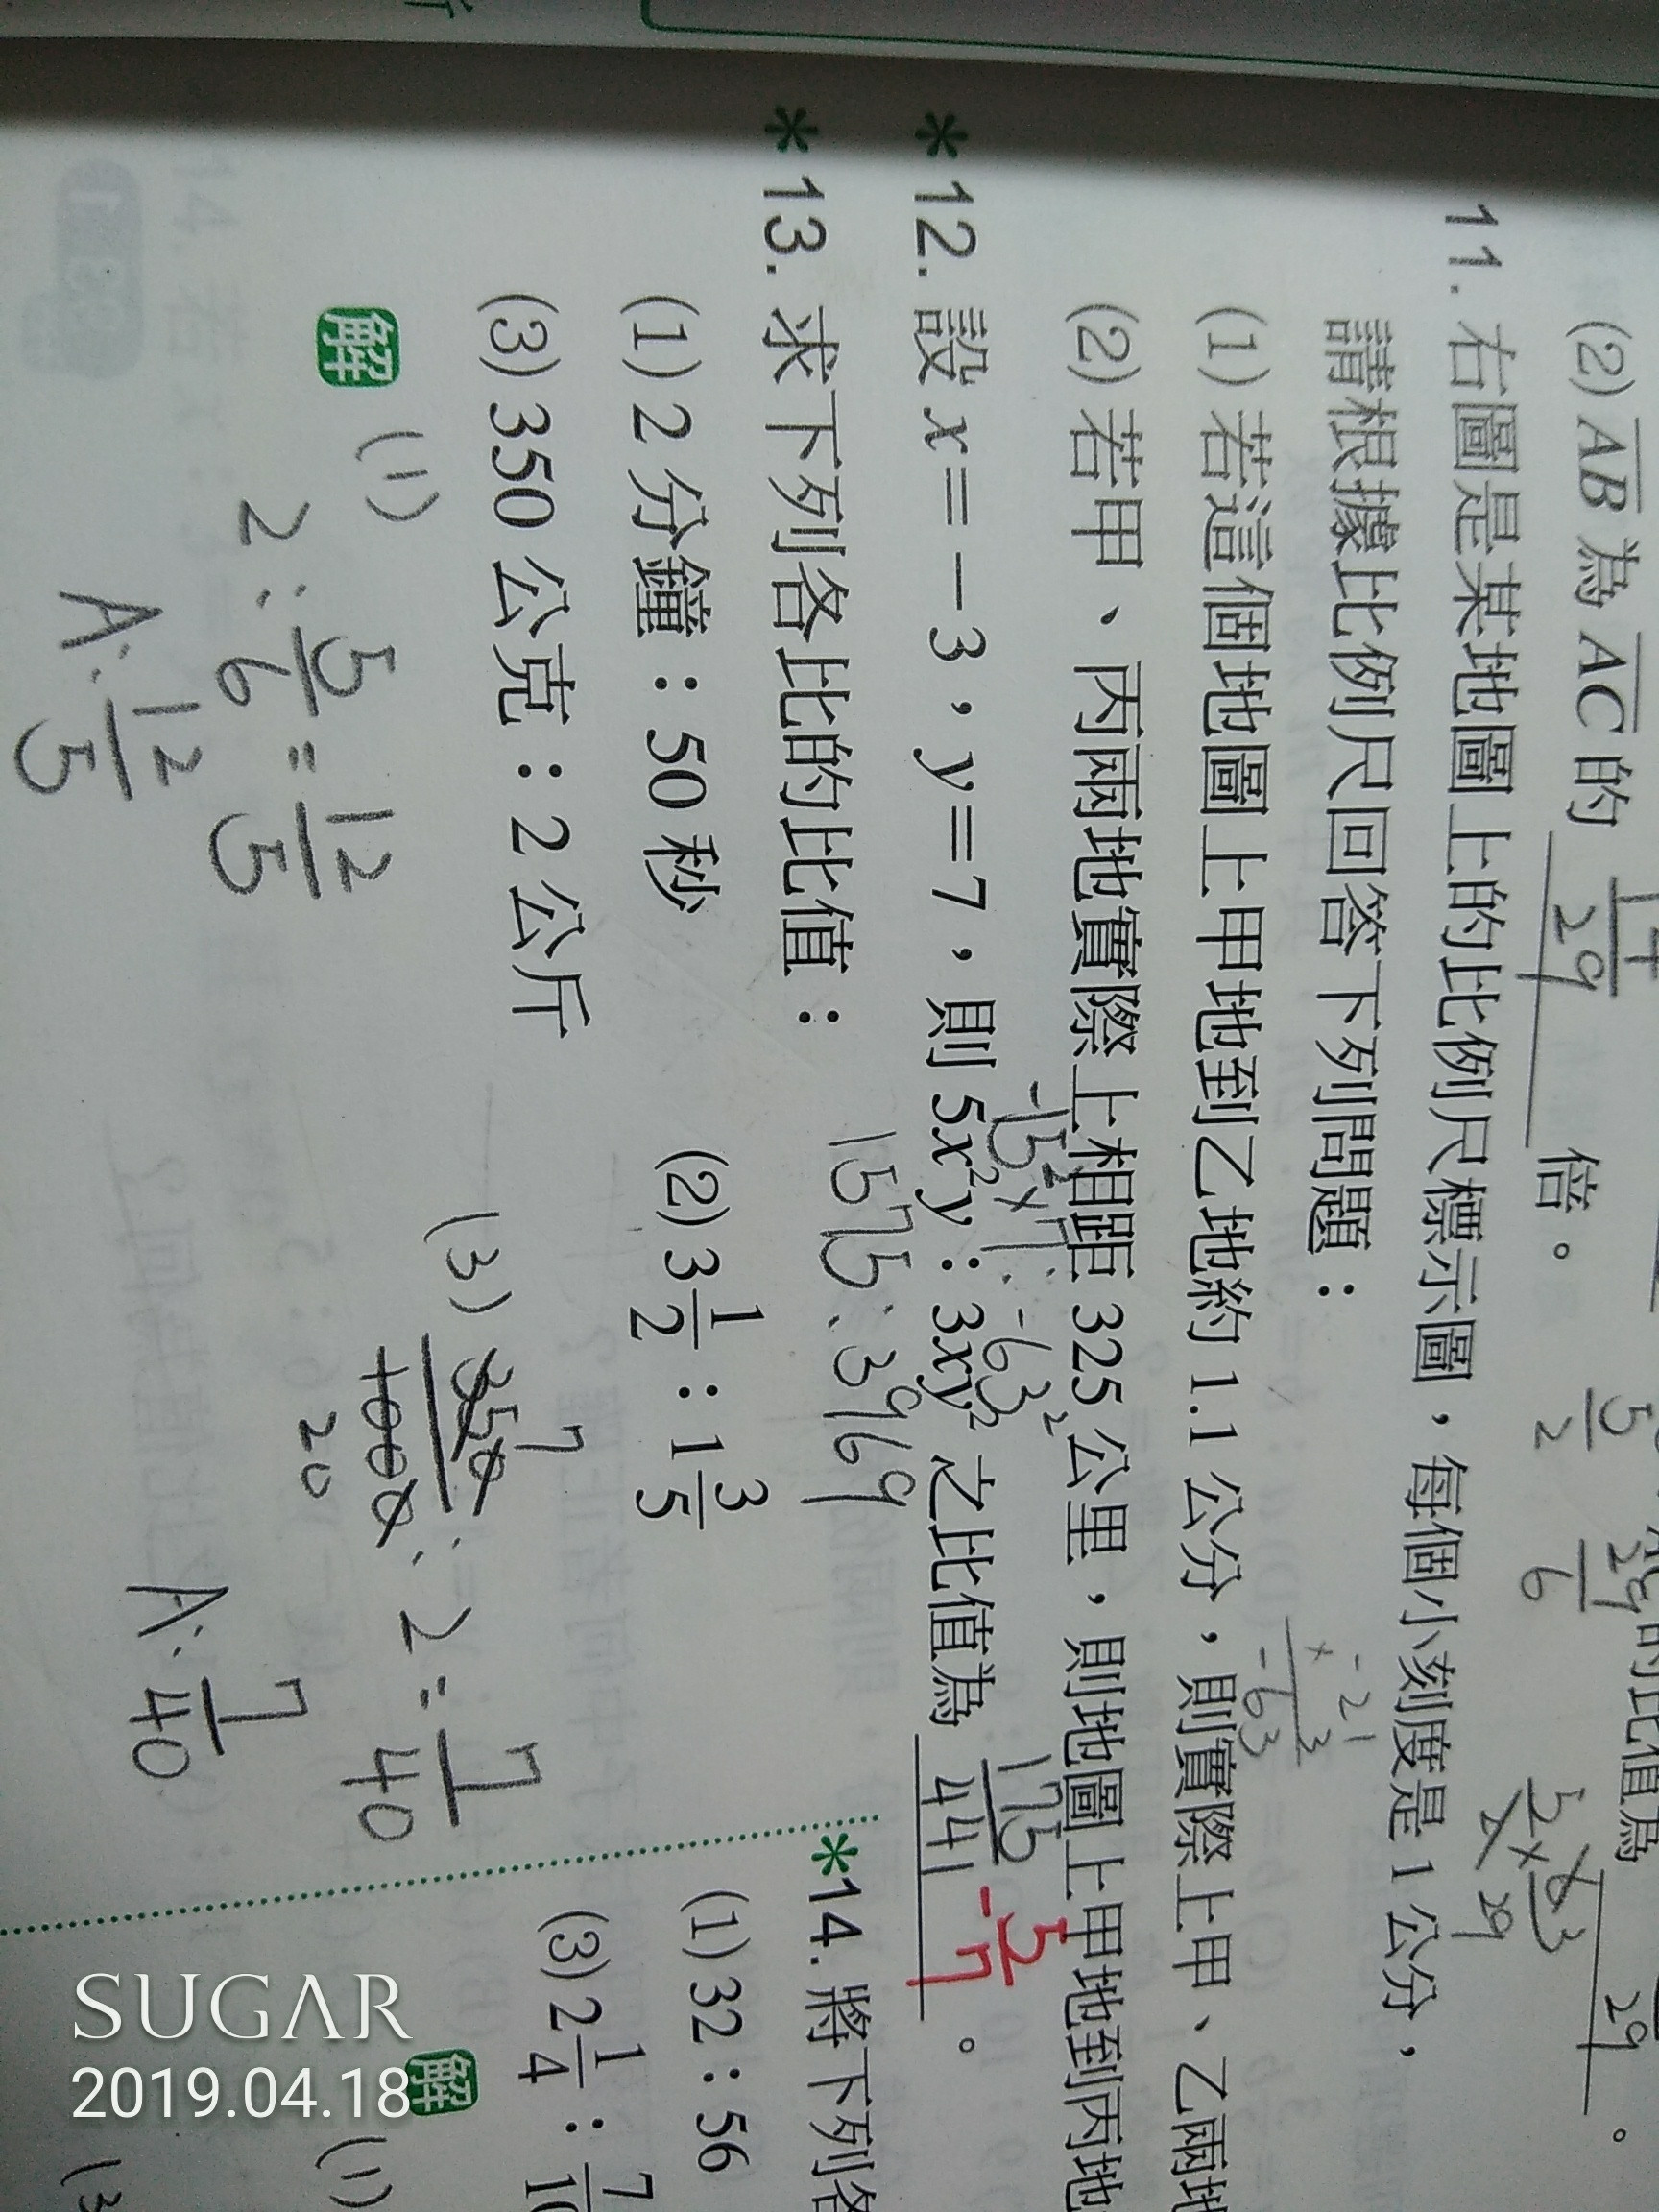 (2) AB 為 AC 的 14/29 倍。
的比值為
29
5/2 : 29/6
5/2 × 6 3/29
11. 右圖是某地圖上的比例尺標示圖，每個小刻度是 1 公分，
請根據比例尺回答下列問題：
-21
× 3
-63
(1) 若這個地圖上甲地到乙地約 1.1 公分，則實際上甲、乙兩地
(2) 若甲、丙兩地實際上相距 325 公里，則地圖上甲地到丙地
-15²×7 : -63²
*12. 設 x=-3，y=7，則 5x²y：3xy² 之比值為 175/441 -5/7 。
1575 : 3969
*13. 求下列各比的比值：
(1) 2 分鐘：50 秒
(2) 3 1/2：1 3/5
(3) 350 公克：2 公斤
解
(1)
2 : 5/6 = 12/5
A: 12/5
(3) 350/1000 : 2 = 7/40
7
20
A: 7/40
*14. 將下列各
(1) 32：56
(3) 2 1/4：7/10
解
(1)
(3
SUGAR
2019.04.18